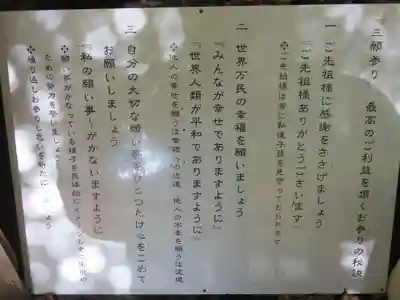 三願参り 最高のご利益を頂くお参りの秘訣
一 ご先祖様に感謝をささげましょう
『ご先祖様ありがとうございます』
☆ご先祖様は常に私達子孫を見守っておられます
二 世界万民の幸福を願いましょう
『みんなが幸せでありますように』
『世界人類が平和でありますように』
☆他人の幸せを願うは幸福への近道 他人の不幸を願うは逆道
三 自分の大切な願い事をひとつだけ心をこめて
お願いしましょう
『私の願い事〜がかないますように』
☆願い事がかなっている様子を具体的にイメージしそこ
ための努力を誓いましょう
☆繰り返しお参りし思いを新たに しょう